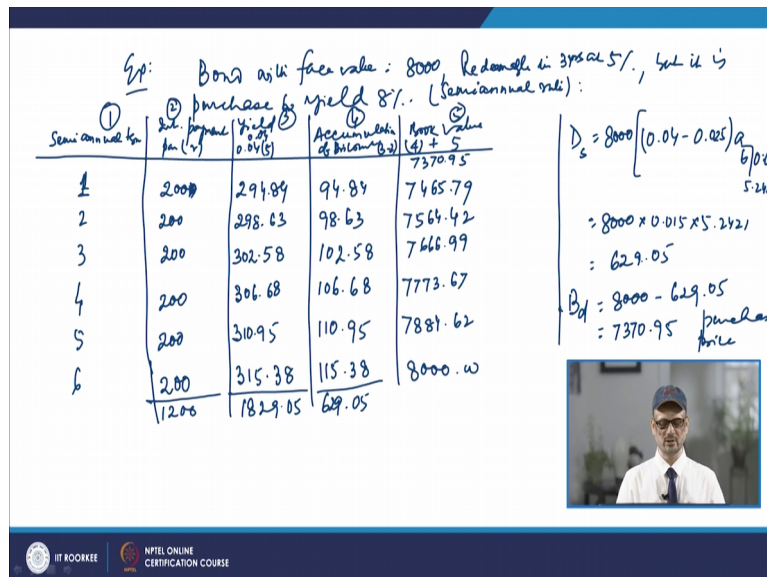 Exp: Bond with face value: 8000, Redeemable in 3 yrs at 5%, but it is
purchase to yield 8%. (Semiannual rate):
① ② ③ ④ ⑤
Semi annual term Int. payment Yield Accumulation Book Value
0.04 of Discount (3-2) (4) + 5
0.04(5)
7370.95
1 200 294.84 94.84 7465.79
2 200 298.63 98.63 7564.42
3 200 302.58 102.58 7666.99
4 200 306.68 106.68 7773.67
5 200 310.95 110.95 7884.62
6 200 315.38 115.38 8000.00
1200 1829.05 629.05
Ds = 8000 [(0.04 - 0.025) a
6
5.24
= 8000 x 0.015 x 5.2421
= 629.05
Bd = 8000 - 629.05
= 7370.95 purchase
price
IIT ROORKEE
NPTEL ONLINE
CERTIFICATION COURSE